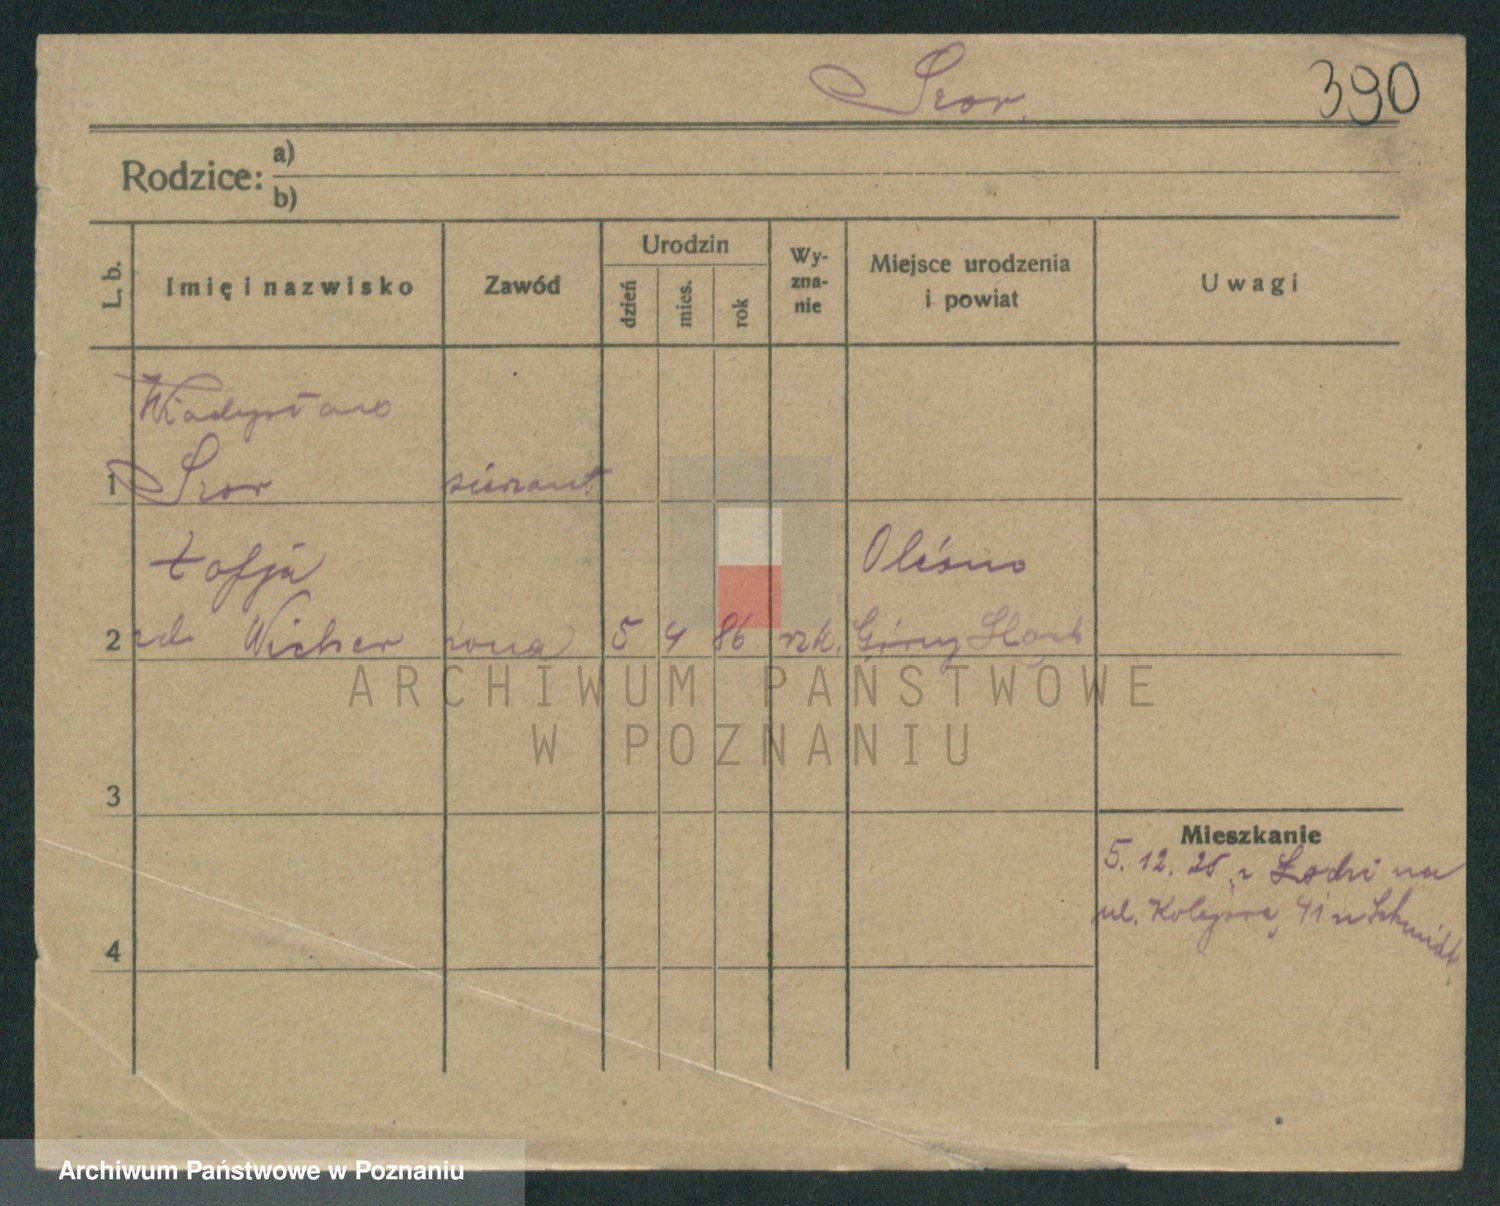 Szor.
390
Rodzice: a)
b)
L. b.
Imię i nazwisko
Zawód
Urodzin
dzień
mies.
rok
Wy-
zna-
nie
Miejsce urodzenia
i powiat
Uwagi
Władysław
1 Szor
Zofja
Oleśno
2 zd. Wicher żona 5 4 86 rzk. Górny Śląsk
3
4
Mieszkanie
5. 12. 25. z Łodzi na
ul. Kolejowa 41 u Schmidt
ARCHIWUM PAŃSTWOWE
W POZNANIU
Archiwum Państwowe w Poznaniu